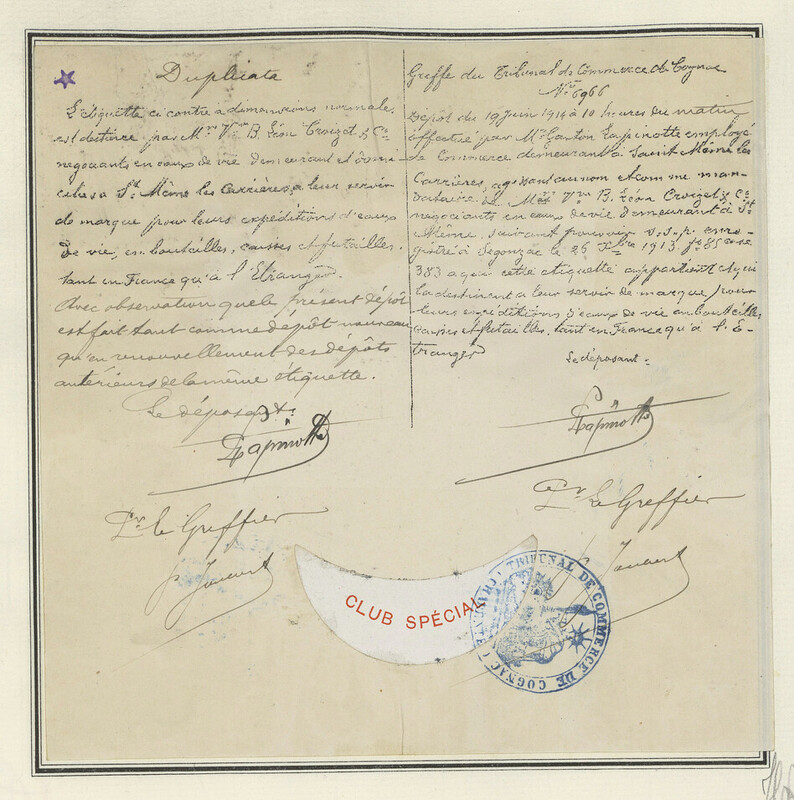 Duplicata
L'étiquette ci contre à dimensions normales
est destinée par Mrs Vve B. Léon Croizet & Co
négociants en eaux de vie demeurant et domi-
ciliés à St Même les Carrières, à leur servir
de marque pour leurs expéditions d'eaux
de vie, en bouteilles, caisses et futailles
tant en France qu'à l'Etranger
Avec observation que le présent dépôt
est fait tant comme dépôt nouveau
qu'en renouvellement des dépôts
antérieurs de la même étiquette.
Le déposant:
Lapinotte
Pr le Greffier
Greffe du Tribunal de Commerce de Cognac
No 6966
Dépôt du 19 Juin 1914 à 10 heures du matin
effectué par Mr Gaston Lapinotte employé
de Commerce demeurant à Saint Même les
Carrières, agissant au nom et comme man-
dataire de Mrs Vve B. Léon Croizet & Co
négociants en eaux de vie demeurant à St
Même, suivant pouvoir s.s.p. enre-
gistré à Segonzac le 26 Xbre 1913 fo 85 case
383 à qui cette étiquette appartient et qui
la destinent à leur servir de marque pour
leurs expéditions d'eaux de vie en bouteilles
caisses et futailles, tant en France qu'à l'é-
tranger
Le déposant:
Lapinotte
Pr Le Greffier
CLUB SPÉCIAL
TRIBUNAL DE COMMERCE DE COGNAC (CHARENTE)